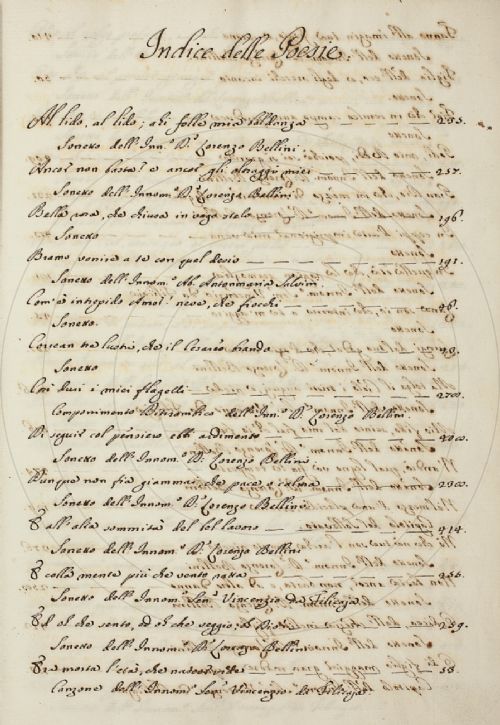 Indice delle Poesie.
Al lido, al lido; ohi folle mia baldanza 255.
Sonetto dell'Inn.º D.r Lorenzo Bellini.
Ancor non basta? e ancor gli oltraggi miei 257.
Sonetto dell'Innom.º D.r Lorenzo Bellini
Bella rosa, che chiusa in vago stelo 196
Sonetto
Bramo venire a te con quel desio 191.
Sonetto dell'Innom.º Ab. Antonmaria Salvini.
Com'è intrepido Amor! neve, che fiocchi
Sonetto.
Correan tre lustri, che il Cesareo brando
Sonetto
Così duri i miei flagelli
Componimento dell'Inn.º D.r Lorenzo Bellini
Di seguir col pensiero ebbi ardimento
Sonetto dell'Innom.º D.r Lorenzo Bellini
Dunque non fia giammai, che pace, o calma
Sonetto dell'Innom.º D.r Lorenzo Bellini
E all'alta sommità del bel lavoro 214.
Sonetto dell'Innom.º D.r Lorenzo Bellini
E colla mente più che vento ratta 256.
Sonetto dell'Innom.º Sen.r Vincenzio da Filicaja
E d'ol che sento, ed oh che seggio, oh Dio 259.
Sonetto dell'Innom.º D.r Lorenzo Bellini
Era morta l'età, che
Canzone dell'Innom. Sen.r Vincenzio da Filicaja